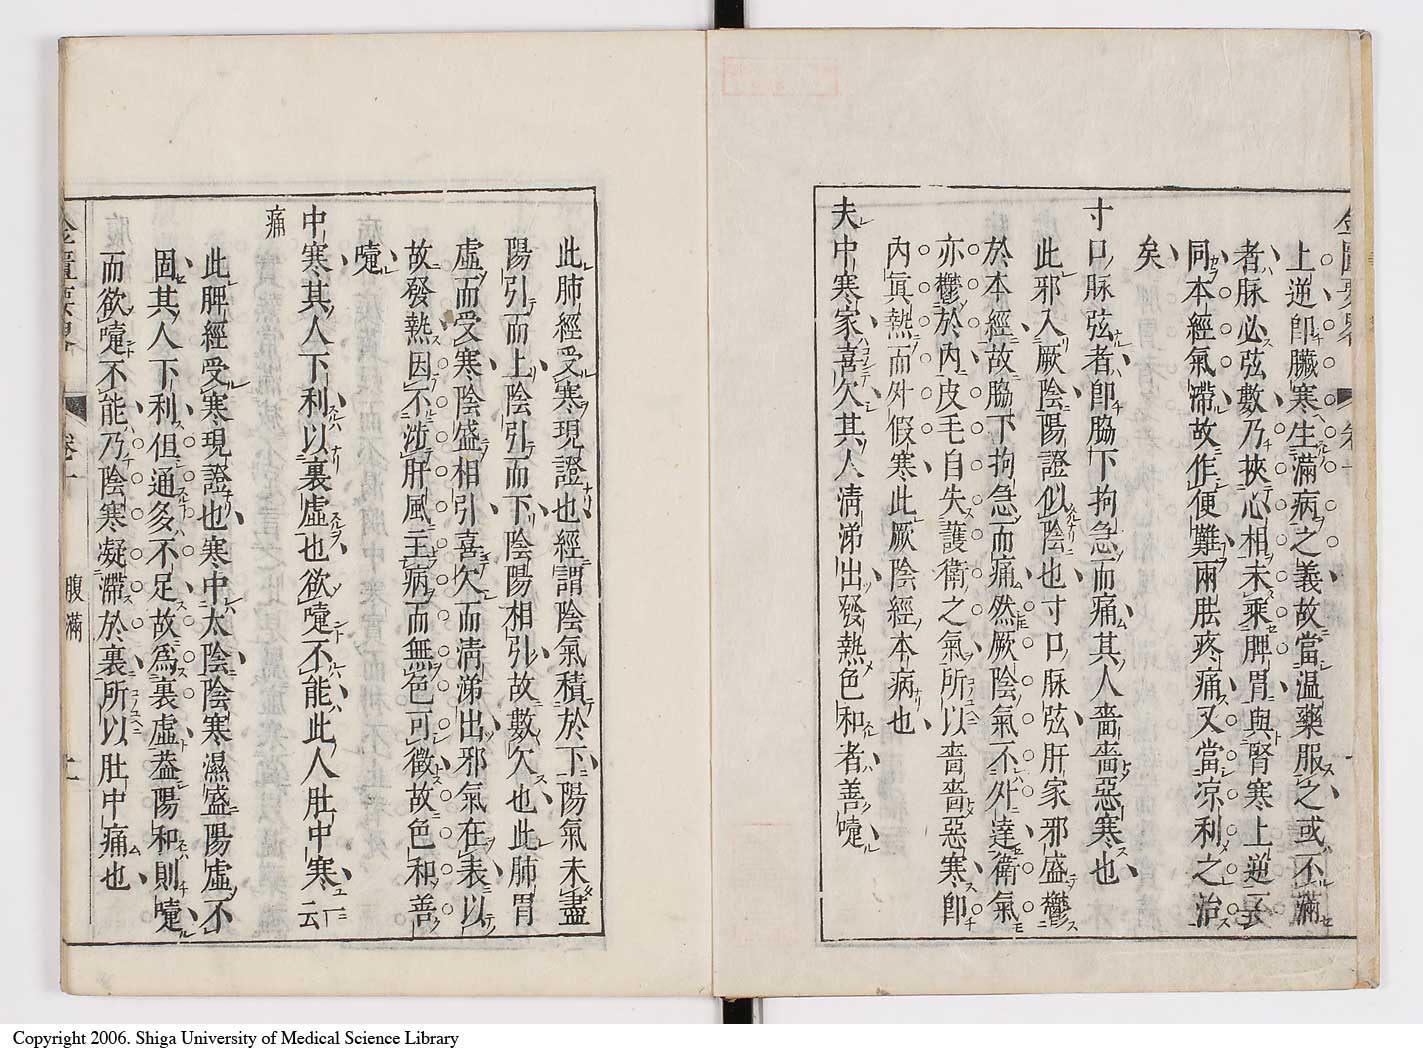 上逆即臟寒生滿病之義故當温藥服之或不滿
者脉必弦數乃挾心相未乘脾胃與腎寒上逆云
同本經氣滯故作便難兩胠疼痛又當凉利之治
矣
寸口脉弦者即脇下拘急而痛其人嗇嗇惡寒也
此邪入厥陰陽證似陰也寸口脉弦肝家邪盛鬱
於本經故脇下拘急而痛然厥陰氣不外達衛氣
亦鬱於內皮毛自失護衛之氣所以嗇嗇惡寒即
內眞熱而外假寒此厥陰經本病也
夫中寒家喜欠其人清涕出發熱色和者善嚏
此肺經受寒現證也經謂陰氣積於下陽氣未盡
陽引而上陰引而下陰陽相引故數欠也此肺胃
虛而受寒陰盛相引喜欠而清涕出邪氣在表以
故發熱因不涉肝風主病而無色可徵故色和善
嚏
中寒其人下利以裏虛也欲嚏不能此人肚中寒一云
痛
此脾經受寒現證也寒中太陰陰寒濕盛陽虛不
固其人下利但通多不足故爲裏虛葢陽和則嚏
而欲嚏不能乃陰寒凝滯於裏所以肚中痛也
腹滿
Copyright 2006. Shiga University of Medical Science Library